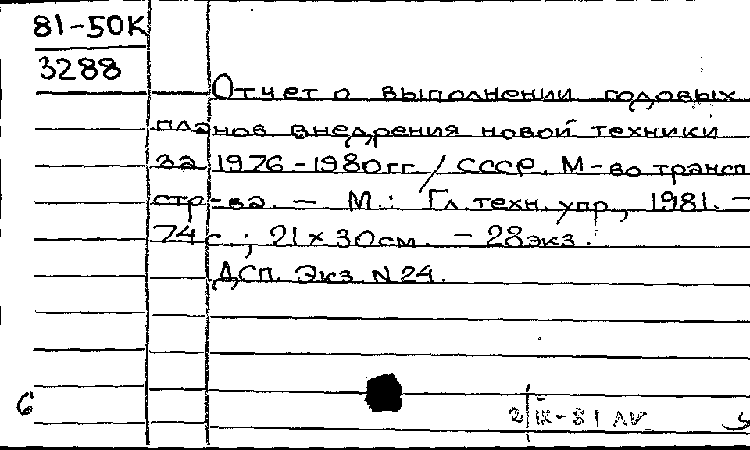 81-50К
3288
Отчет о выполнении годовых
планов внедрения новой техники
за 1976-1980гг / СССР. М-во трансп.
стр-ва. – М.: Гл. техн. упр., 1981. –
74 с.; 21 x 30см. – 28экз.
ДСП. Экз. N 24.
6